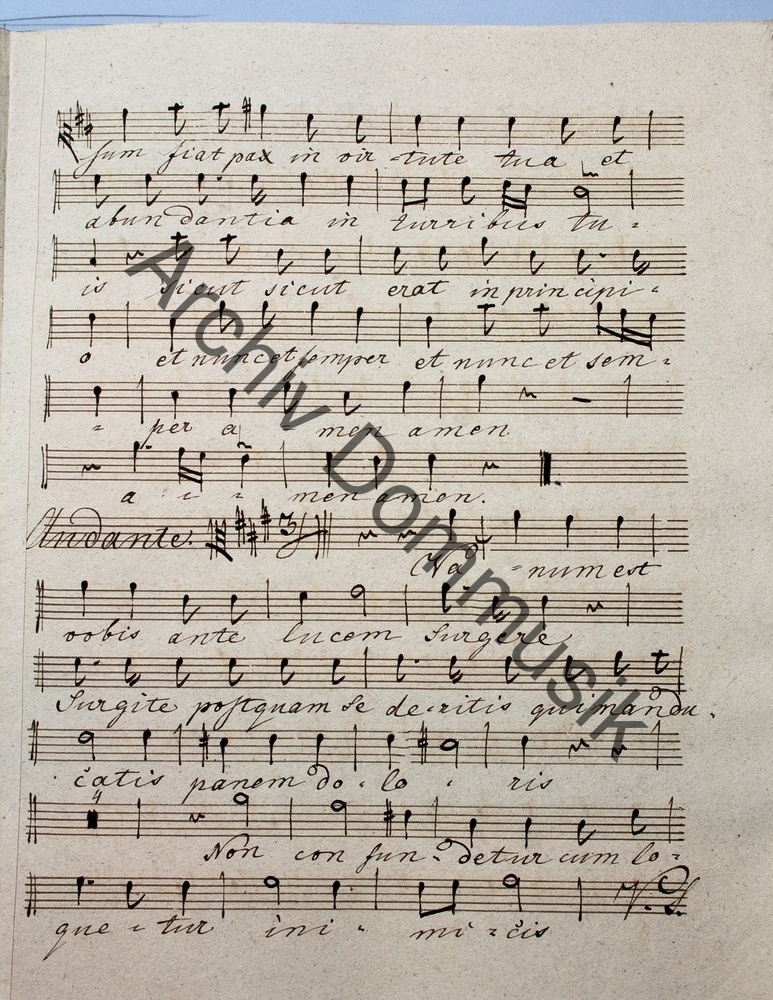 sum fiat pax in vir - tute tua et
abundantia in turribus tu -
is sicut sicut erat in principi -
o et nunc et semper et nunc et sem -
- per a men amen
a - - men amen.
Andante. 3/
Va - num est
vobis ante lucem Surgere
Surgite postquam se de - ritis qui mandu -
catis panem do - lo - ris
4
Non con fun - detur cum lo -
que - tur ini - mi - cis
V. S.
Archiv Dommusik